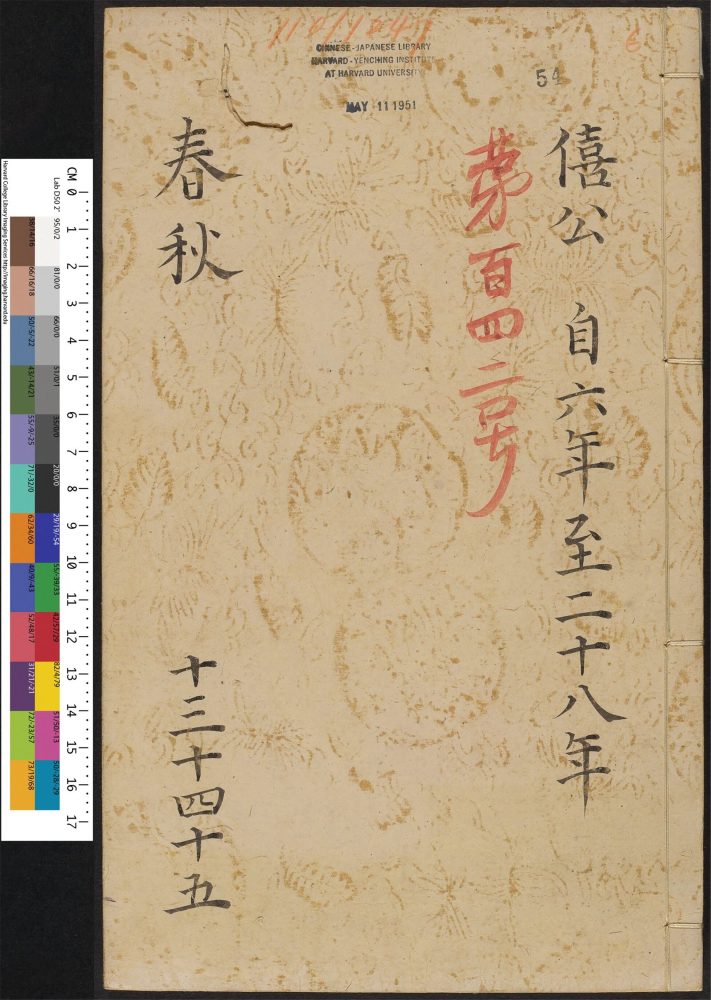 CHINESE-JAPANESE LIBRARY
HARVARD-YENCHING INSTITUTE
AT HARVARD UNIVERSITY
MAY 11 1951
54
6
僖公 自六年至二十八年
第百四二号
春秋
十三十四十五
CM 0 1 2 3 4 5 6 7 8 9 10 11 12 13 14 15 16 17
Harvard College Library Imaging Services http://imaging.harvard.edu
Lab D50 2° 95/0/2 81/0/0 66/0/0 51/0/1 35/0/0 20/0/0 29/19/-54 55/-39/33 42/57/29 82/4/79 51/50/-13 50/-28/-29
38/14/16 66/16/18 50/-5/-22 43/-14/21 55/-9/-25 71/-32/0 62/34/60 40/9/-43 52/48/17 31/21/-21 72/-23/57 73/19/68